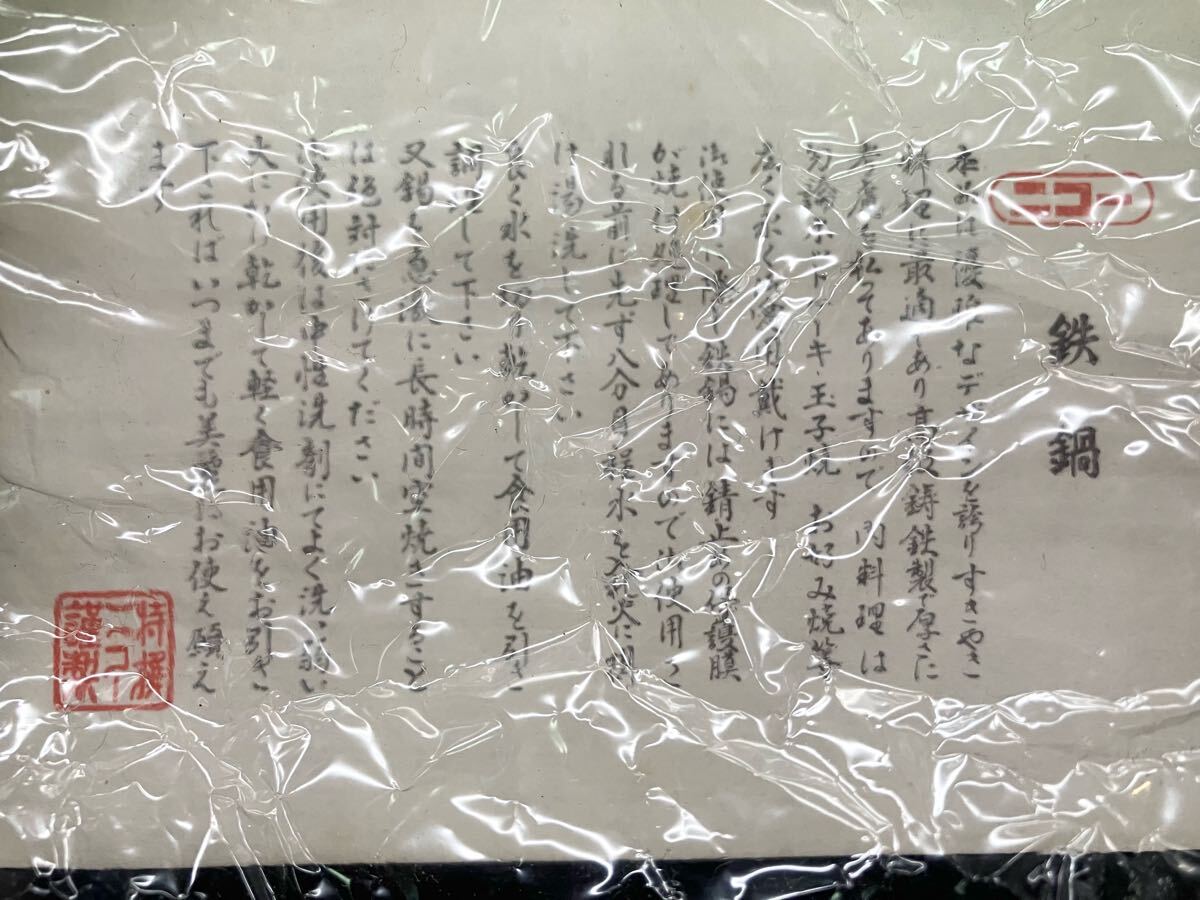 ニコー
鉄鍋
本品は優雅なデザインを誇りすきやき
料理に最適であり高級鋳鉄製厚さに
考慮を払ってありますので 肉料理は
勿論ホットケーキ玉子焼 お好み焼等
広く永く御使用戴けます
御使用に際し鉄鍋には錆止めの保護膜
が焼付処理してありますので御使用さ
れる前に先ず八分目様水を入れ火に掛
け湯洗して下さい
良く水を切り乾かして食用油を引き
訓らして下さい
又鍋を急激に長時間空焼きすること
は絶対にさけてください
御使用後は中性洗剤にてよく洗い弱い
火にかけ乾かして軽く食用油をお引き
下さればいつまでも美麗にお使え願え
ます
特撰
ニコー
謹製